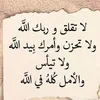 لا تقلق و ربك اللّه
ولا تحزن وأمرك بيد اللّه
ولا تيأس
والأمل كلُّه في اللّه